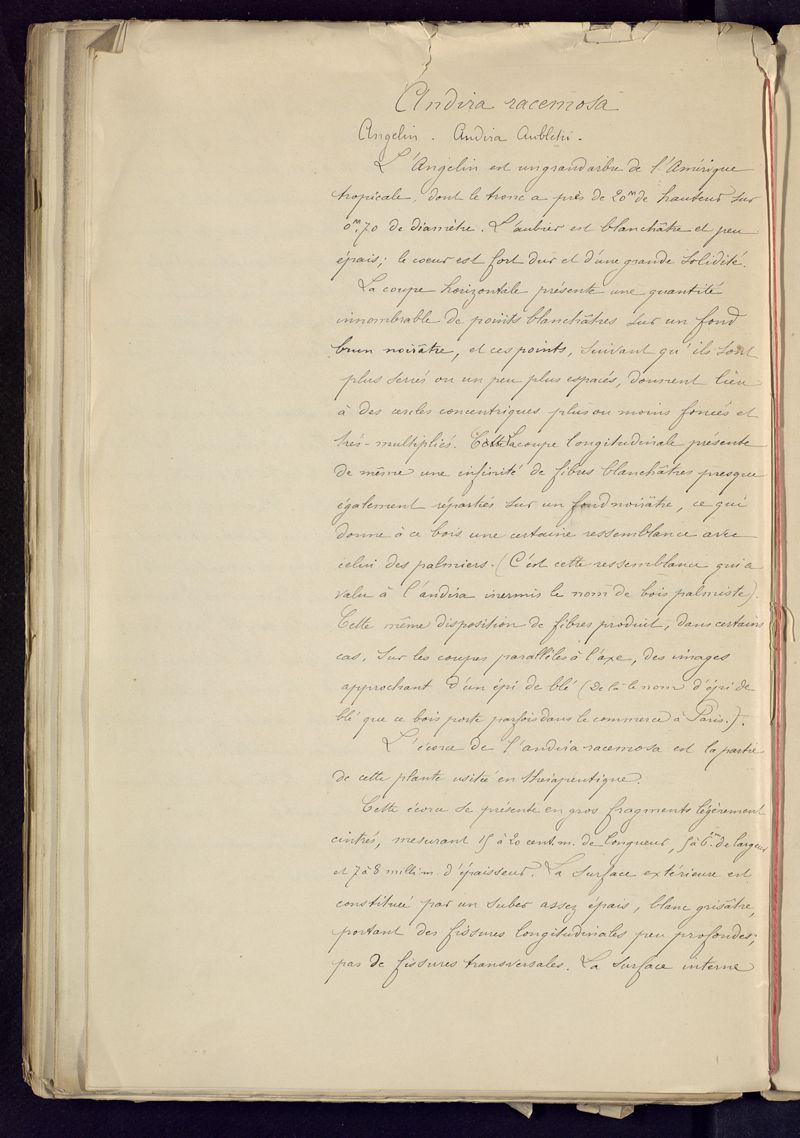 Andira racemosa
Angelin. Andira Aubletii.
L'Angelin est un grand arbre de l'Amérique
tropicale, dont le tronc a près de 20m de hauteur sur
0m,70 de diamètre. L'aubier est blanchâtre et peu
épais; le coeur est fort dur et d'une grande solidité.
La coupe horizontale présente une quantité
innombrable de points blanchâtres sur un fond
brun noirâtre, et ces points, suivant qu'ils sont
plus serrés ou un peu plus espacés, donnent lieu
à des cercles concentriques plus ou moins foncés et
très-multipliés. La coupe longitudinale présente
de même une infinité de fibres blanchâtres presque
également réparties sur un fond noirâtre, ce qui
donne à ce bois une certaine ressemblance avec
celui des palmiers. (C'est cette ressemblance qui a
valu à l'andira inermis le nom de bois palmiste).
Cette même disposition de fibres produit, dans certains
cas, sur les coupes parallèles à l'axe, des images
approchant d'un épi de blé (De là le nom d'épi de
blé que ce bois porte parfois dans le commerce à Paris.).
L'écorce de l'andira racemosa est la partie
de cette plante usitée en thérapeutique.
Cette écorce se présente en gros fragments légèrement
cintrés, mesurant 15 à 20 cent.m. de longueur, 5 à 6 cm. de largeur
et 7 à 8 millim. d'épaisseur. La surface extérieure est
constituée par un suber assez épais, blanc grisâtre,
portant des fissures longitudinales peu profondes;
pas de fissures transversales. La surface interne